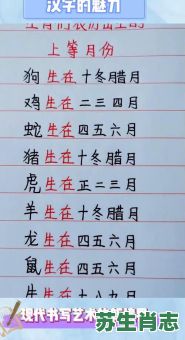 汉字的魅力
上等月份
狗生在十冬腊月
鸡生在二三四月
蛇生在四五六月
猪生在十冬腊月
虎生在正二三月
羊生在十冬腊月
龙生在四五六月
鼠生在四五六月
牛生在十八九月
现代书写艺术
苏生肖志